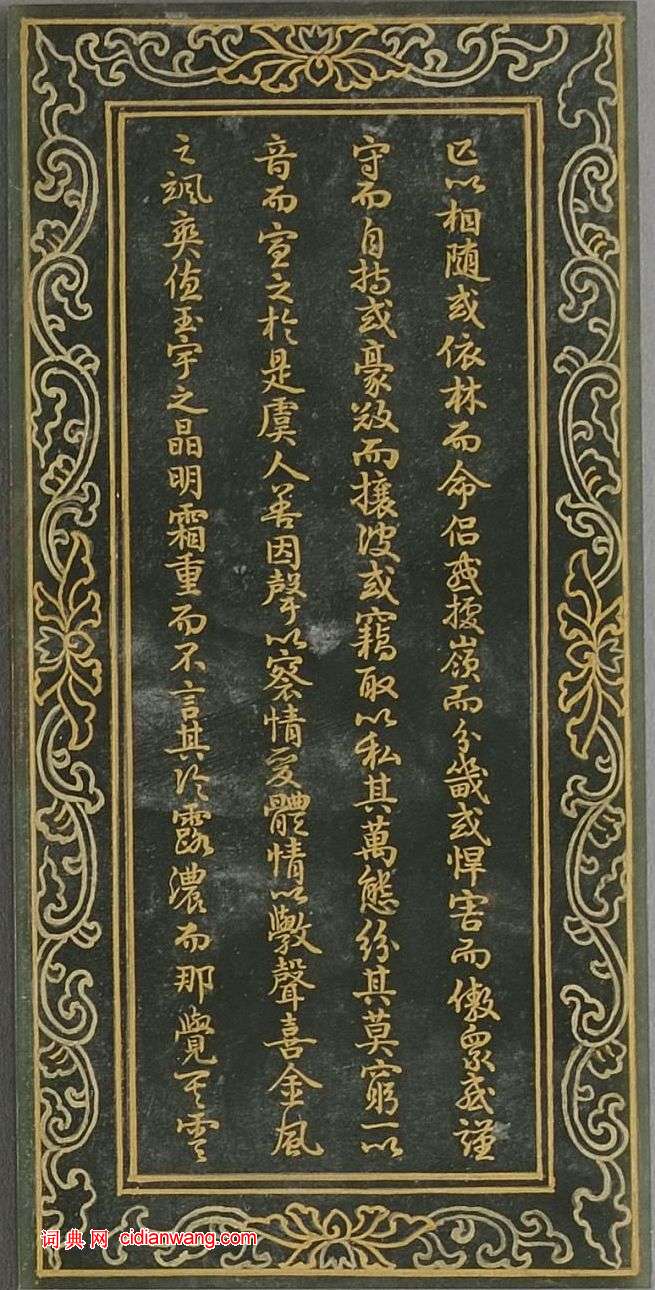 已以相随或依林而命侣或據嶺而分畿或悍害而傲眾或謹
守而自持或豪放而攘波或竊取以私其萬態紛其莫窮一以
音而宣之於是虞人善因聲以察情爰體情以斆聲喜金風
之颯爽值玉宇之晶明霜重而不言其冷露濃而那覺其零
词典网 cidianwang.com